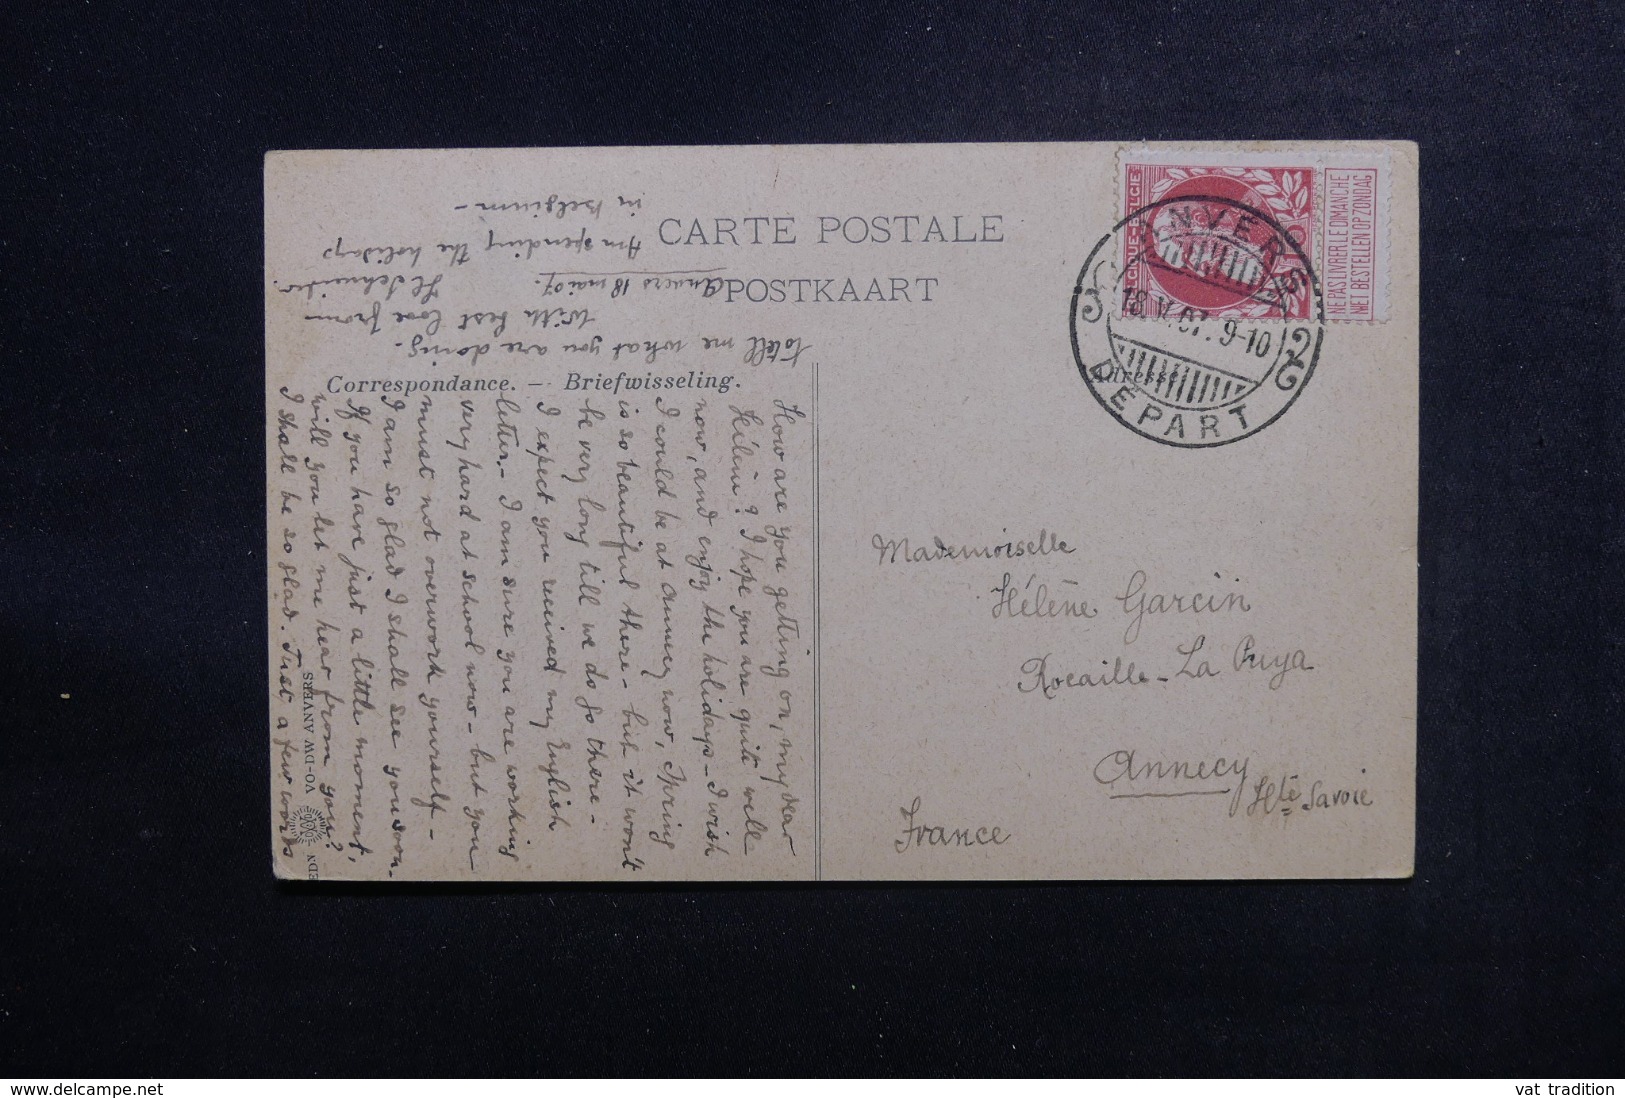 CARTE POSTALE
POSTKAART
Correspondance. — Briefwisseling.
Adresse
BELGIQUE-BELGIË
NE PAS LIVRER LE DIMANCHE
NIET BESTELLEN OP ZONDAG
ANVERS
18 V. 07. 9-10
DÉPART
2
Anvers 18 mai 07.
How are you getting on, my dear
Hélène? I hope you are quite well
now, and enjoy the holidays – I wish
I could be at Annecy now, Spring
is so beautiful there – but it won't
be very long till we do go there –
I expect you received my English
letter. – I am sure you are working
very hard at school now – but you
must not overwork yourself –
I am so glad I shall see you soon.
If you have just a little moment,
will you let me hear from you?
I shall be so glad. Just a few words
to tell me what you are doing.
With best love from
H. Schneider.
Am spending the holidays
in Belgium –
Mademoiselle
Hélène Garcin
Rocaille – La Puya
Annecy
Hte Savoie
France
VO-DW ANVERS
EDN
vat tradition
delcampe.net